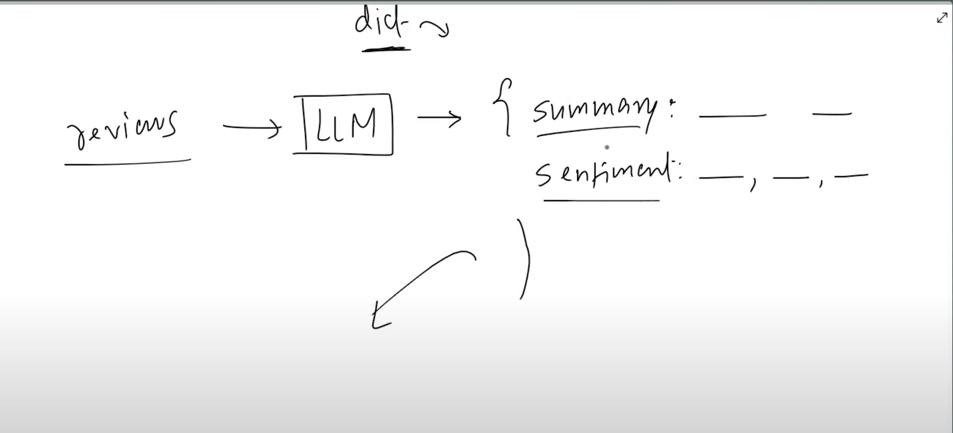 dict
reviews → LLM → { summary: — —
sentiment: —, —, —
}